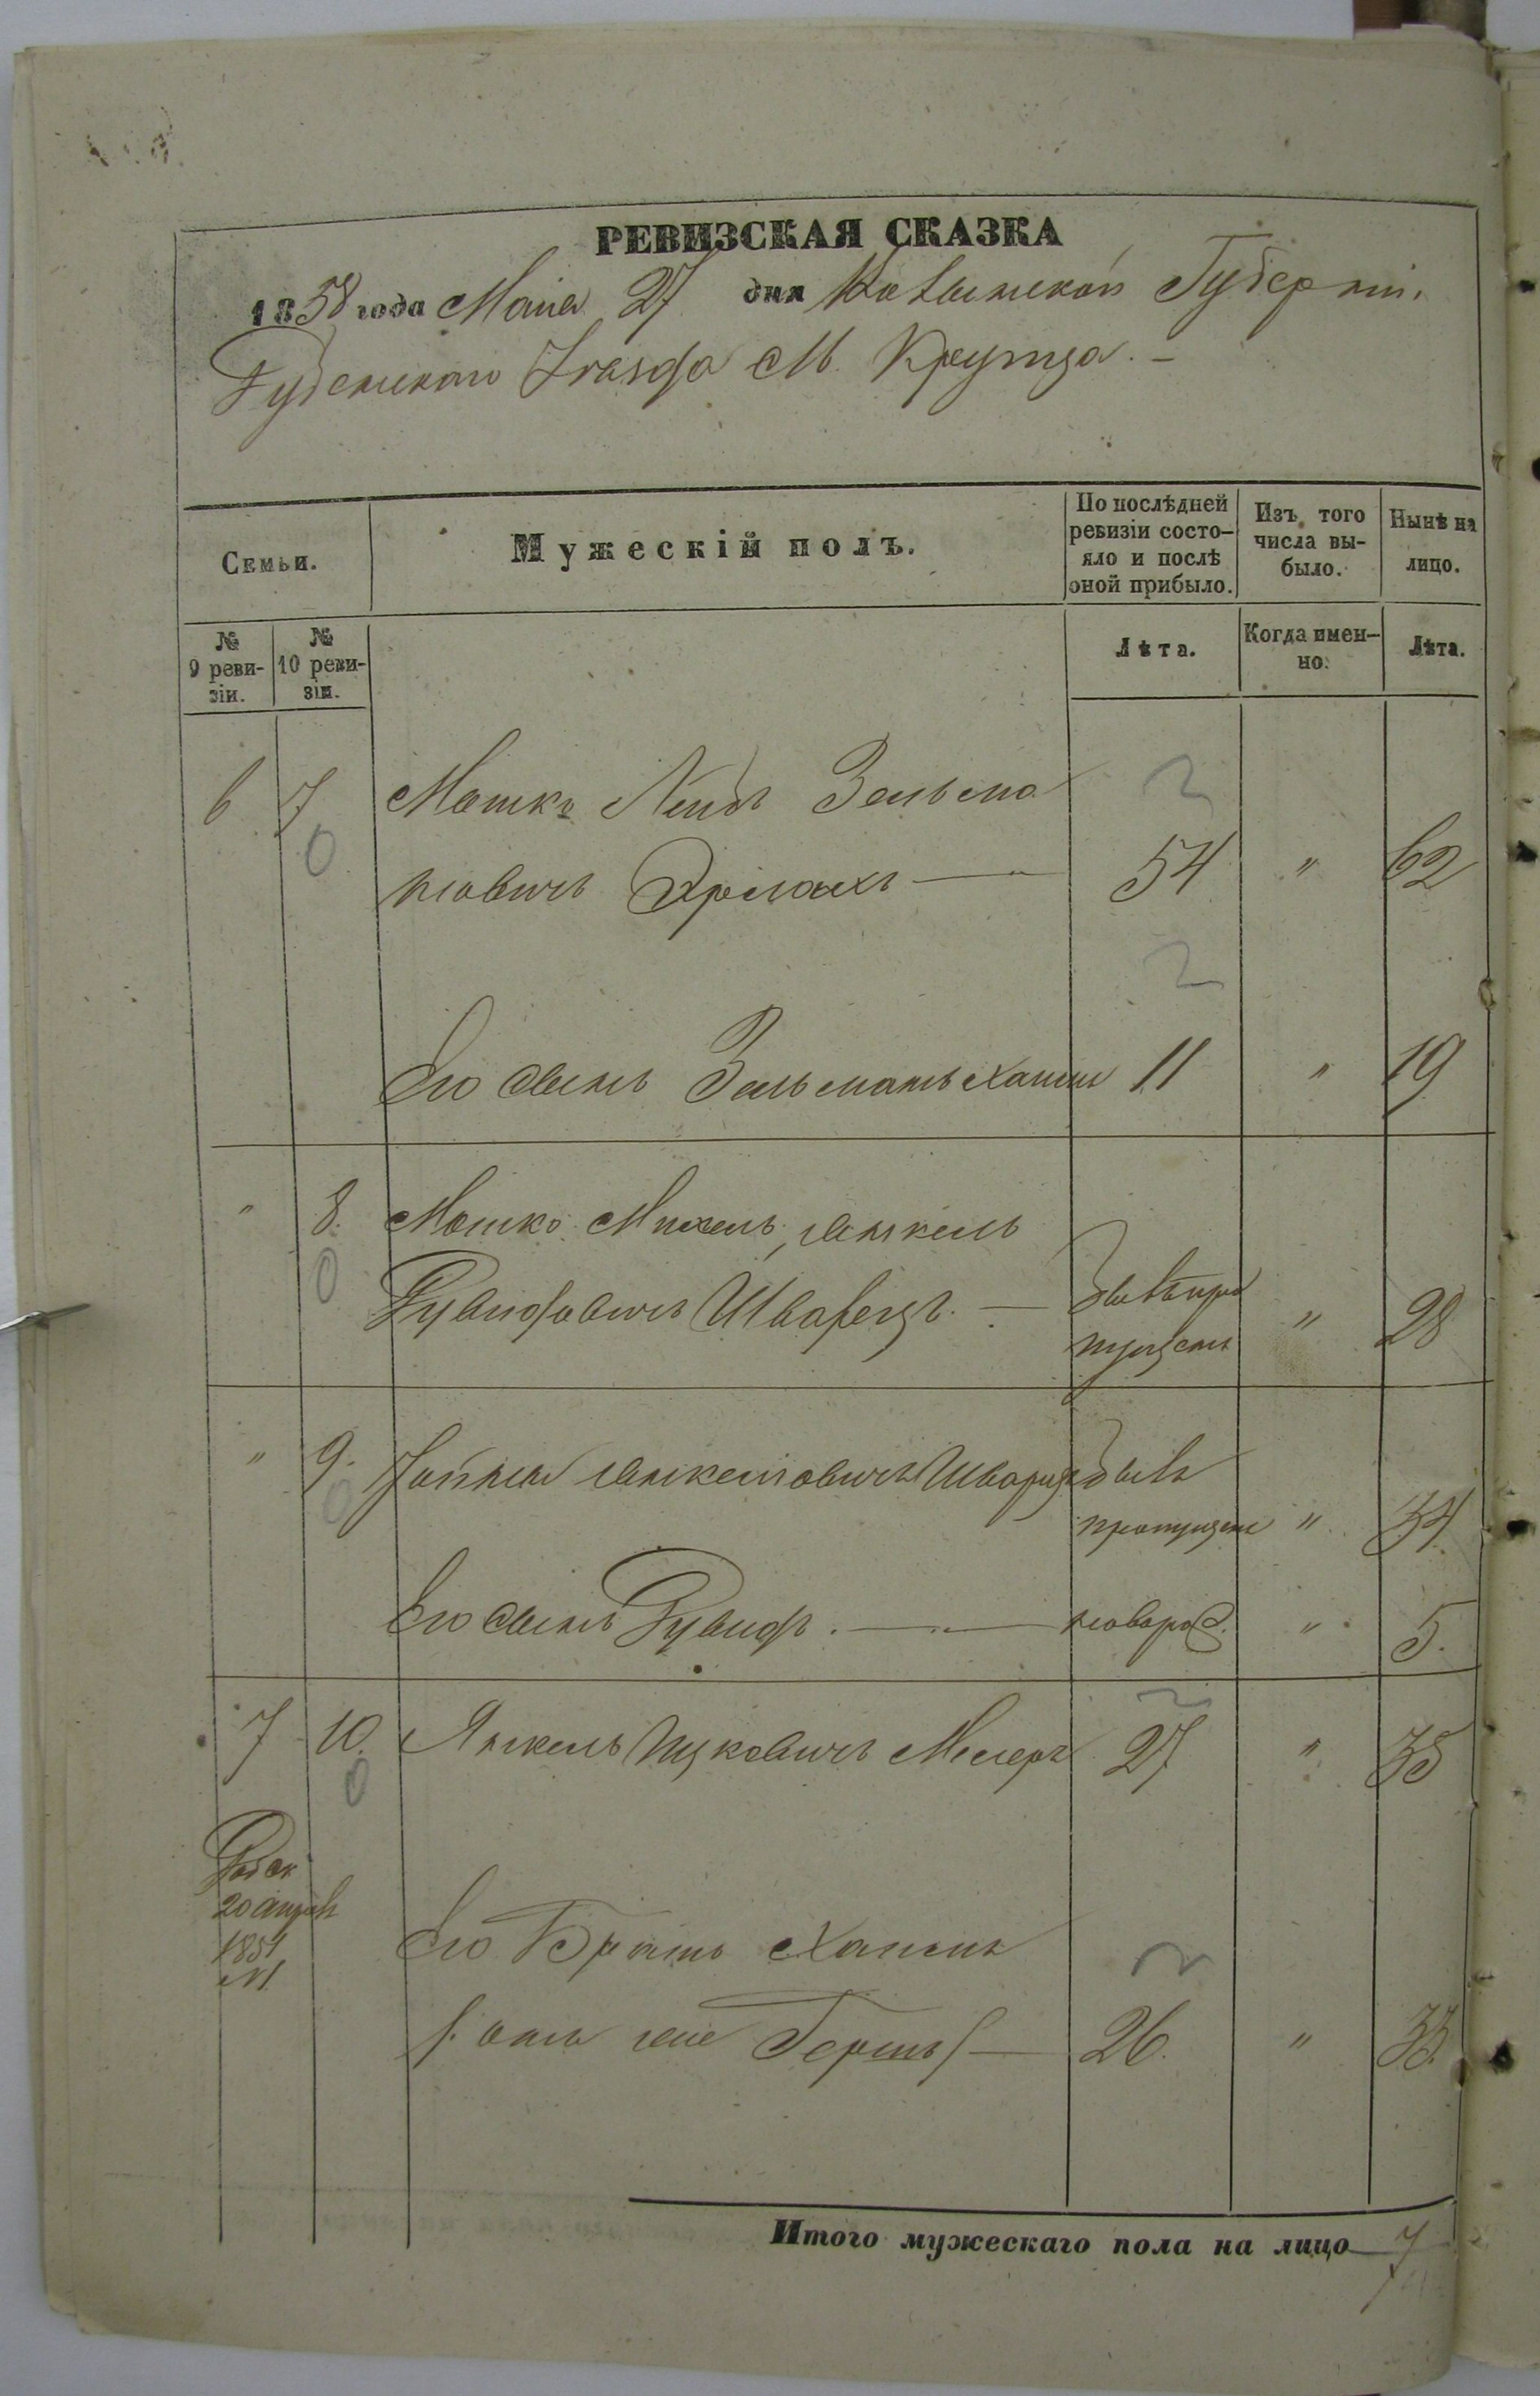 РЕВИЗСКАЯ СКАЗКА
1858 года Маія 27 дня Ковенской Губерніи,
уезда М.
Семьи.
Мужескій полъ.
По послѣдней ревизіи состо-
яло и послѣ
оной прибыло.
Изъ того
числа вы-
было.
Нынѣ на
лицо.
№
9 реви-
зіи.
№
10 реви-
зіи.
Лѣта.
Когда имен-
но.
Лѣта.
6 7 Мошко Лейбъ Зельма
новичъ 54 " 62
Его сынъ Зельманъ Хаимъ 11 " 19
" 8. Мошко Михель Янкель
Рувиновичъ Шварецъ. — былъ про
пущенъ " 28
" 9. Янкелевичъ Шварцъ былъ
пропущенъ " 34.
Его сынъ Рувинъ. — новорож. " 5.
7 10. Янкель Ицковичъ 27 " 35
20 апреля
1851
№1
Его Братъ Хаимъ
(онъ же Гершъ) — 26. "
Итого мужескаго пола на лицо 7